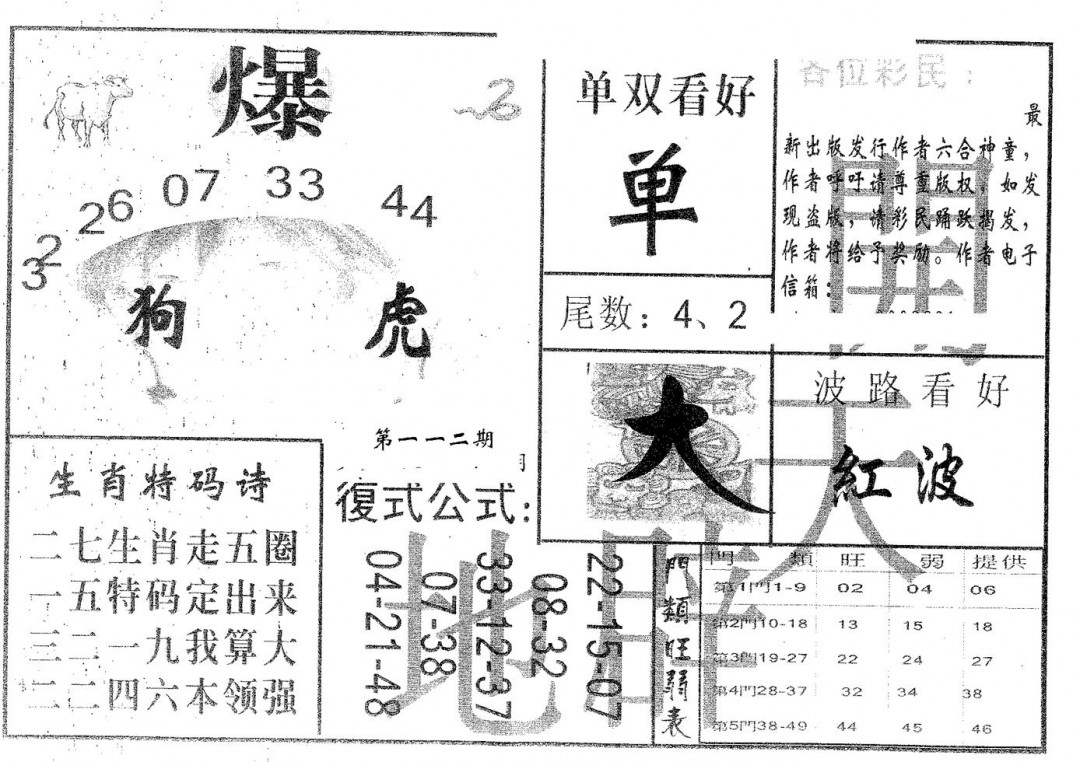 爆
2
3
26
07
33
44
狗
虎
第一一二期
生肖特码诗
二七生肖走五圈
一五特码定出来
三二一九我算大
二二四六本领强
復式公式:
22-15-07
08-32
33-12-37
07-38
04-21-48
单双看好
单
尾数：4、2
各位彩民：
最
新出版发行作者六合神童，
作者呼吁请尊重版权。如发
现盗版，请彩民踊跃揭发，
作者将给予奖励。作者电子
信箱：
大
波路看好
紅波
門類旺弱表
門類 旺 弱 提供
第1門1-9 02 04 06
第2門10-18 13 15 18
第3門19-27 22 24 27
第4門28-37 32 34 38
第5門38-49 44 45 46